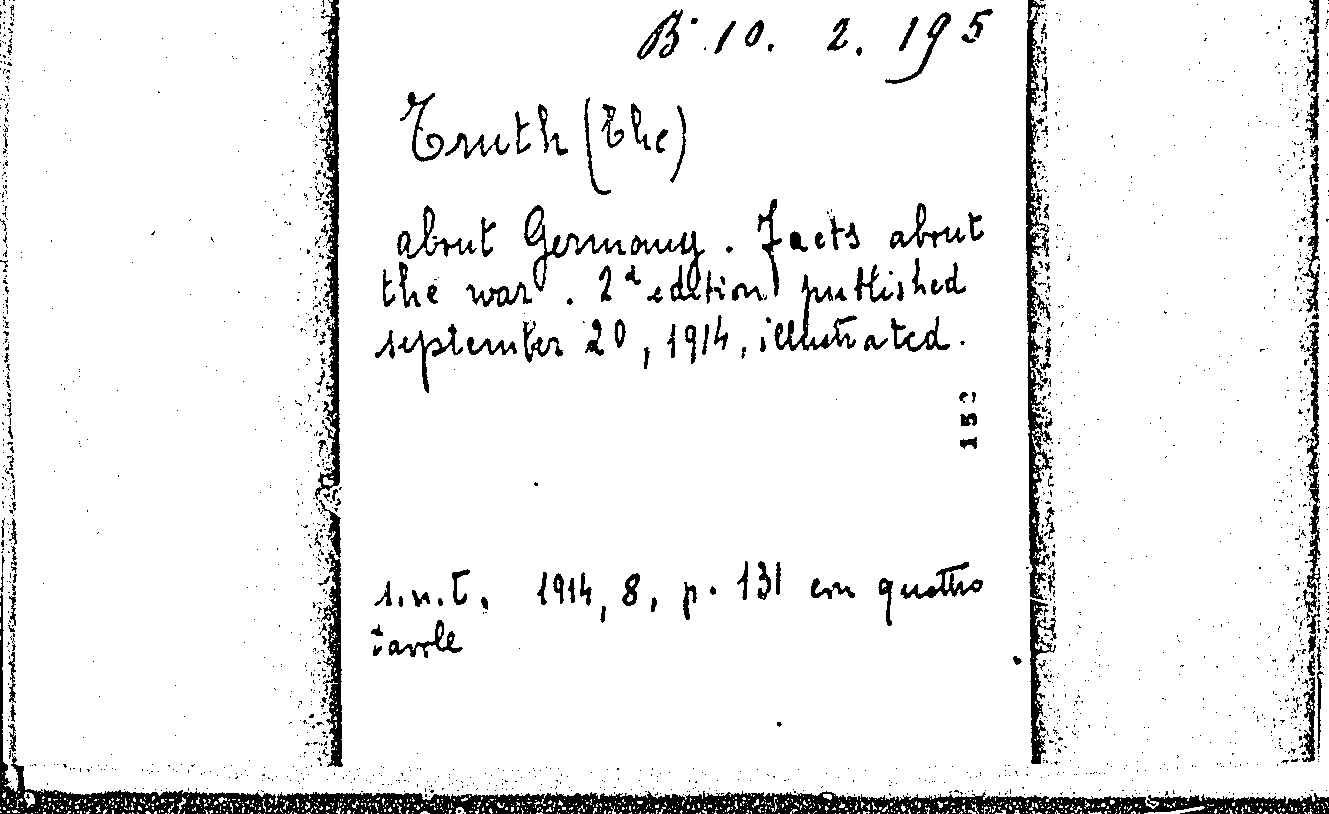 B 10. 2. 195
Truth (The)
about Germany. Facts about
the war. 2d edition published
september 20, 1914, illustrated.
s.n.t. 1914, 8, p. 131 con quattro
tavole